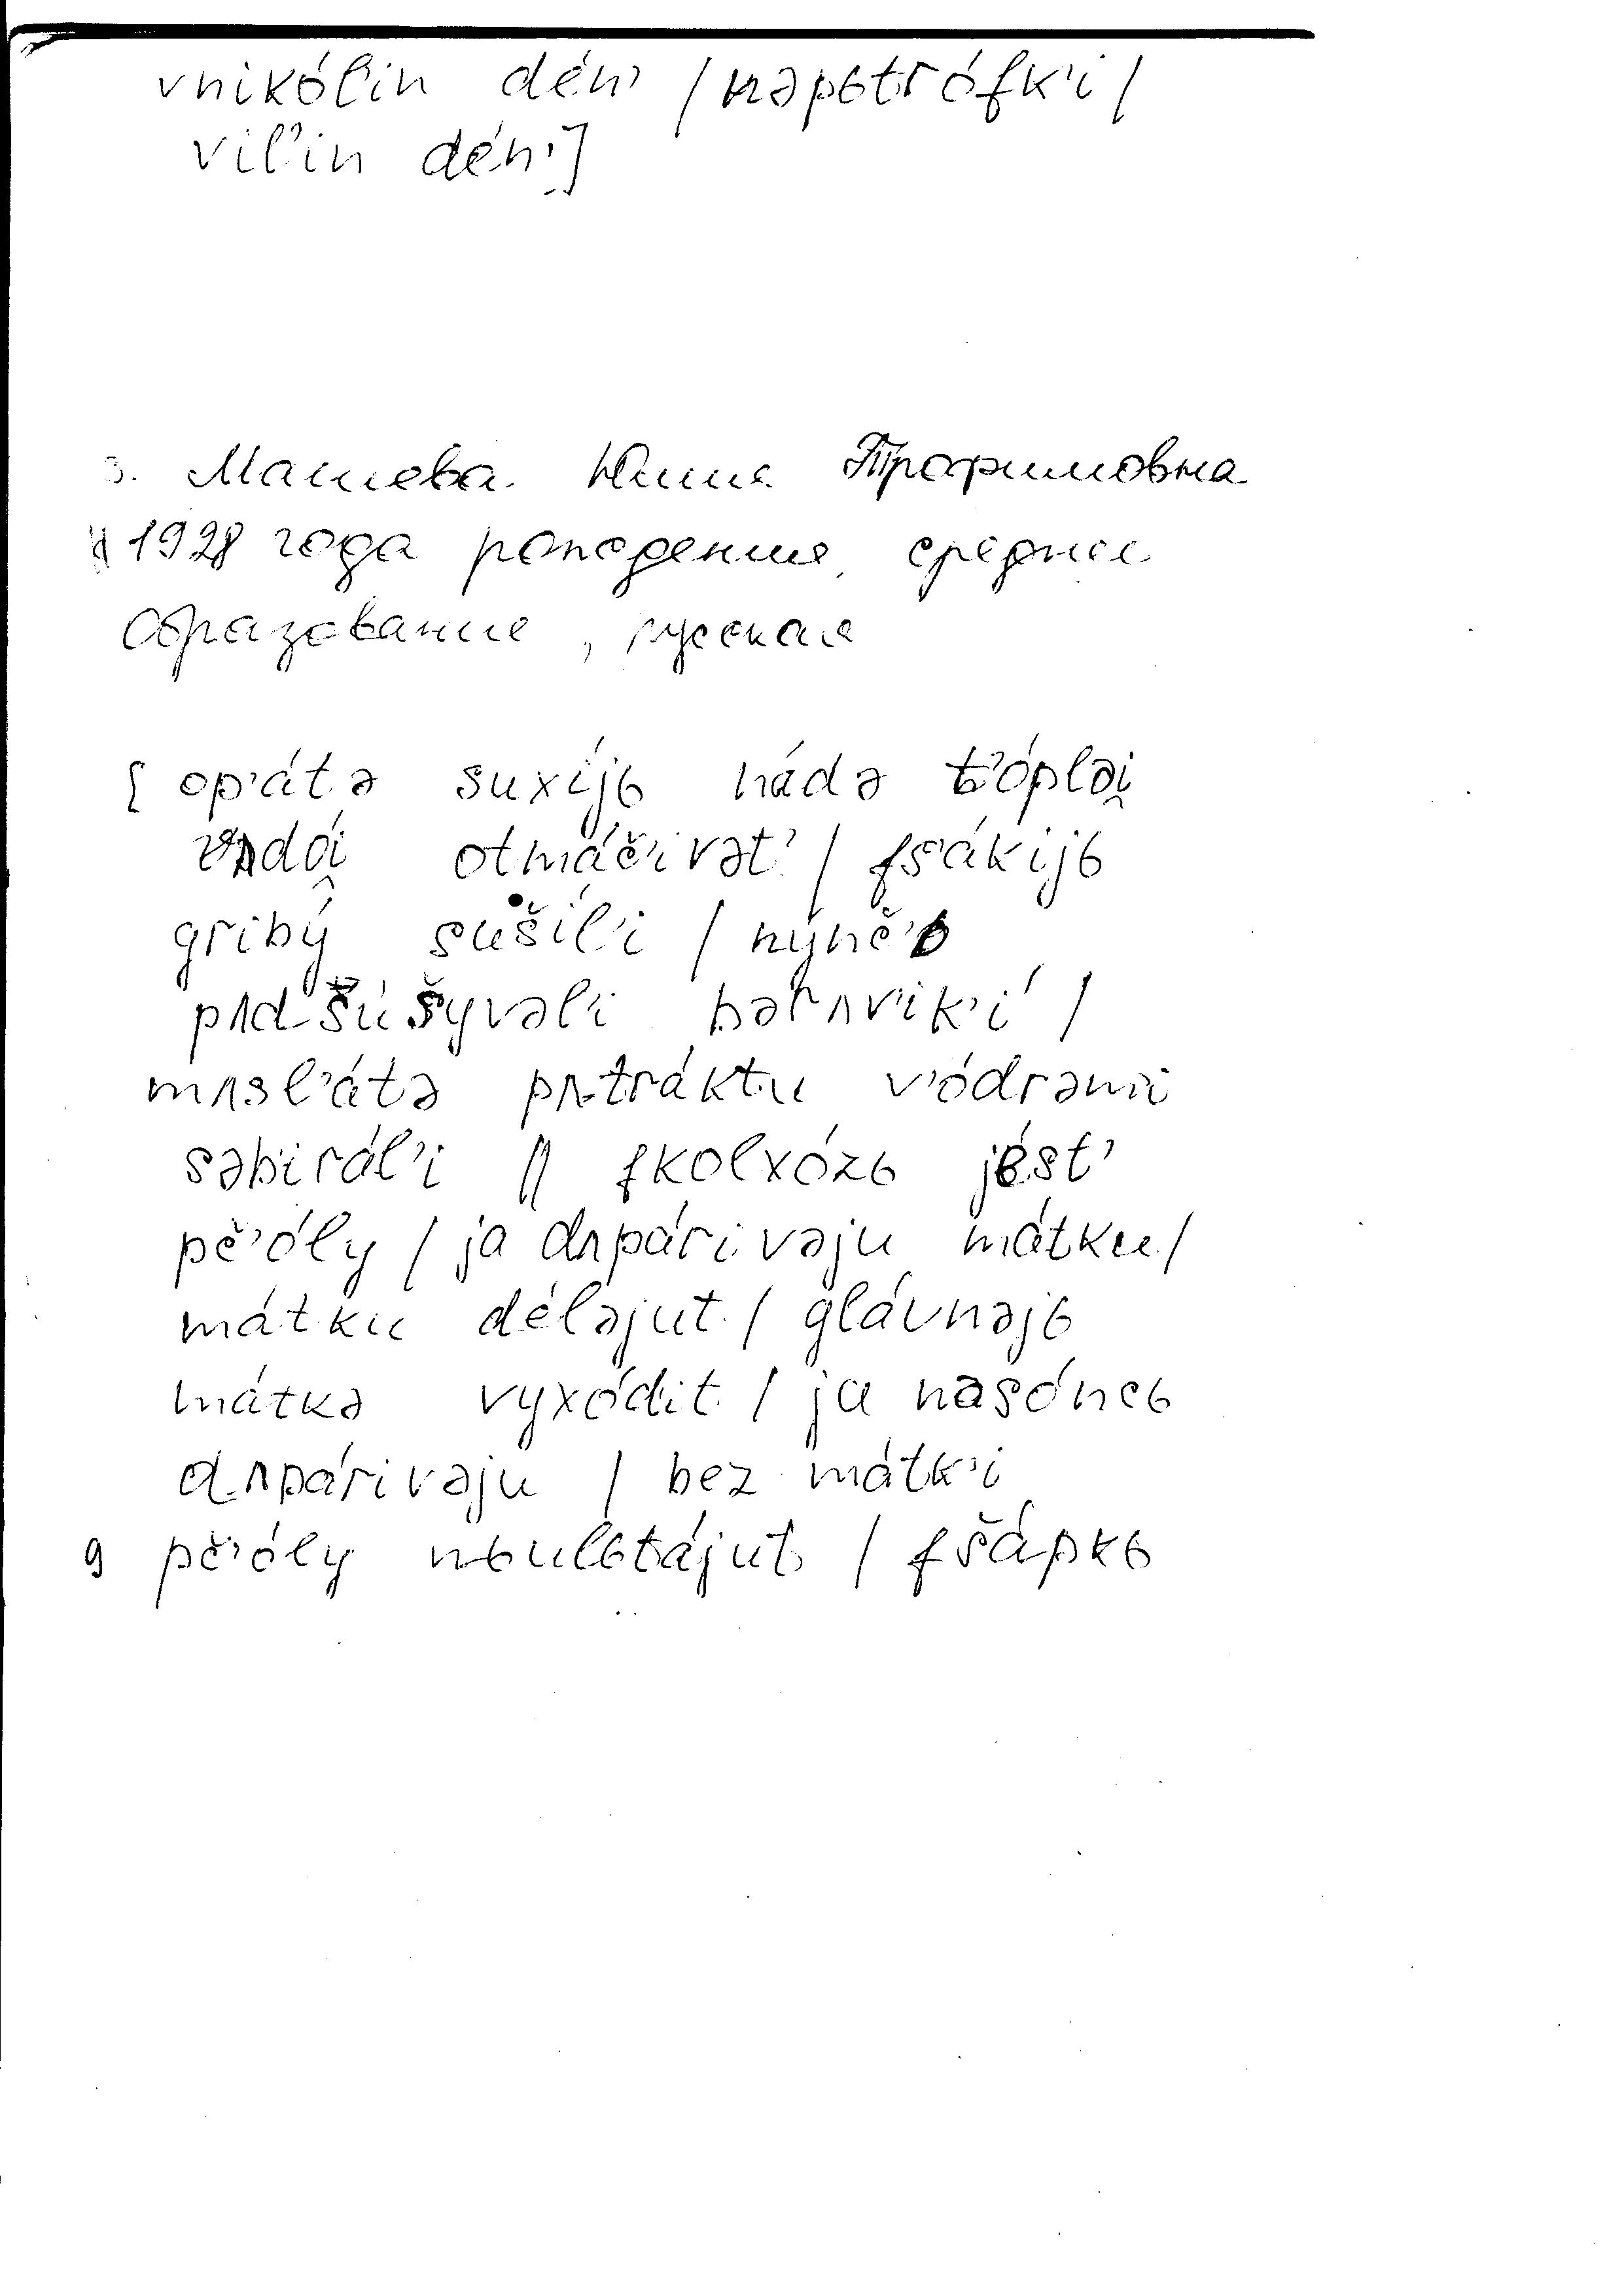 vnikól'in dén' / nəpьtrófk'i /
vil'in dén']
3. Машева Юлия Трофимовна
1928 года рождения, среднее
образование, русская
[ op'átə suxíjь nádə t'ópləi̯
vʌdói̯ otmáč'ivət' / fs'ákijь
gribý sušíl'i / nýnč'ь
pʌdšúšyvəl'i bərʌv'ik'í /
mʌsl'átə pʌtráktu v'ódrəmi
səbirál'i // fkolxózь jést'
pč'óly / ja ʌpárivəju mátku /
mátku déləjut / glávnəjь
mátkə vyxódit / ja nasóncь
ʌpárivəju / bez mátk'i
9 pč'óly nьulьtájut / fšápkь